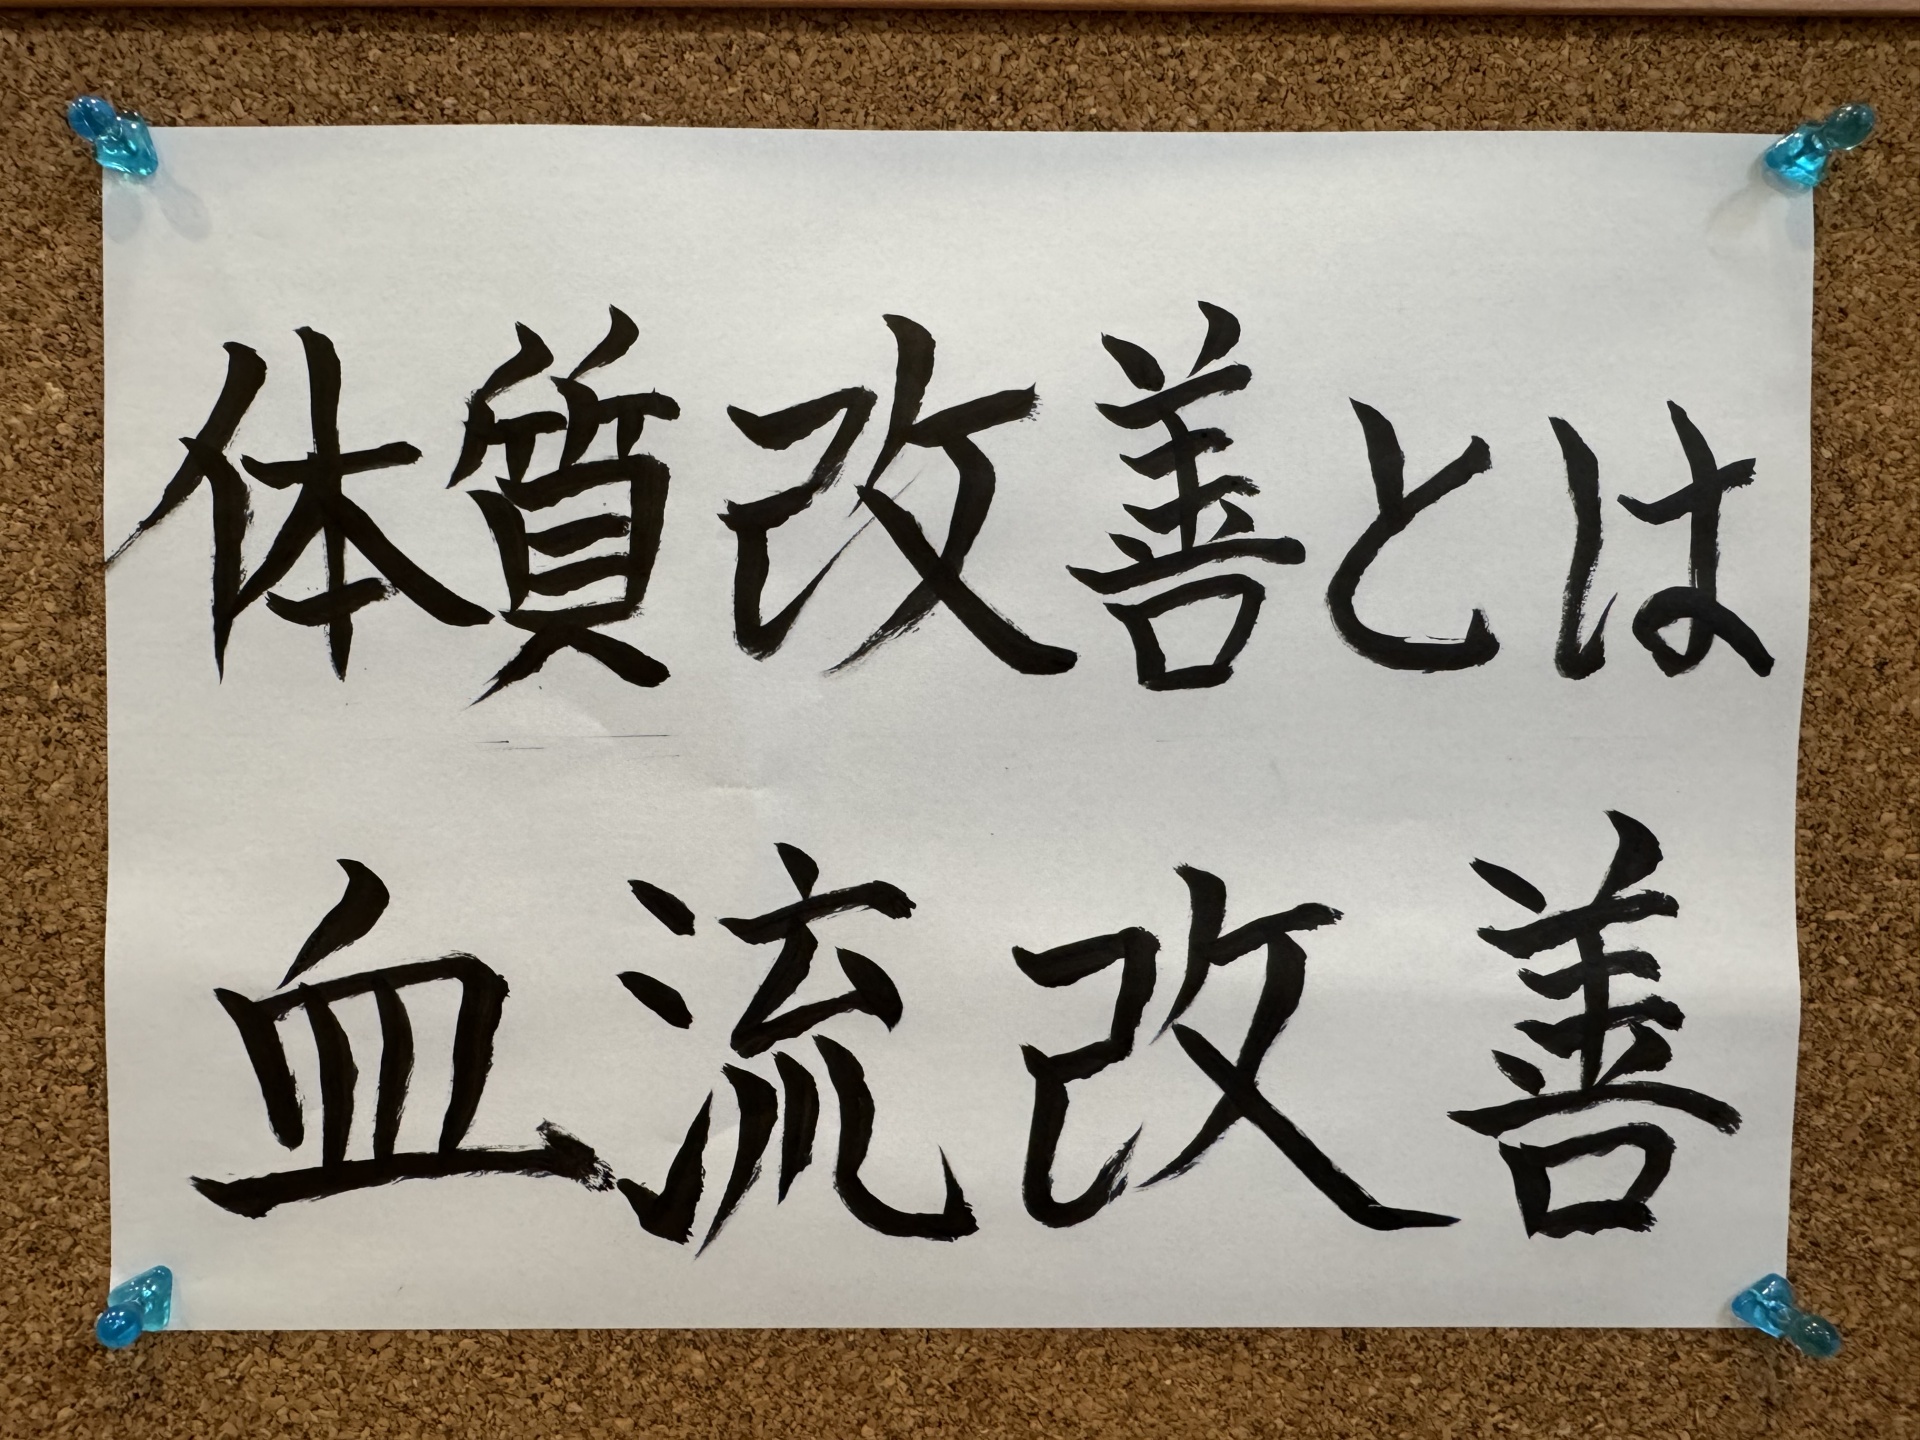 体質改善とは
血流改善